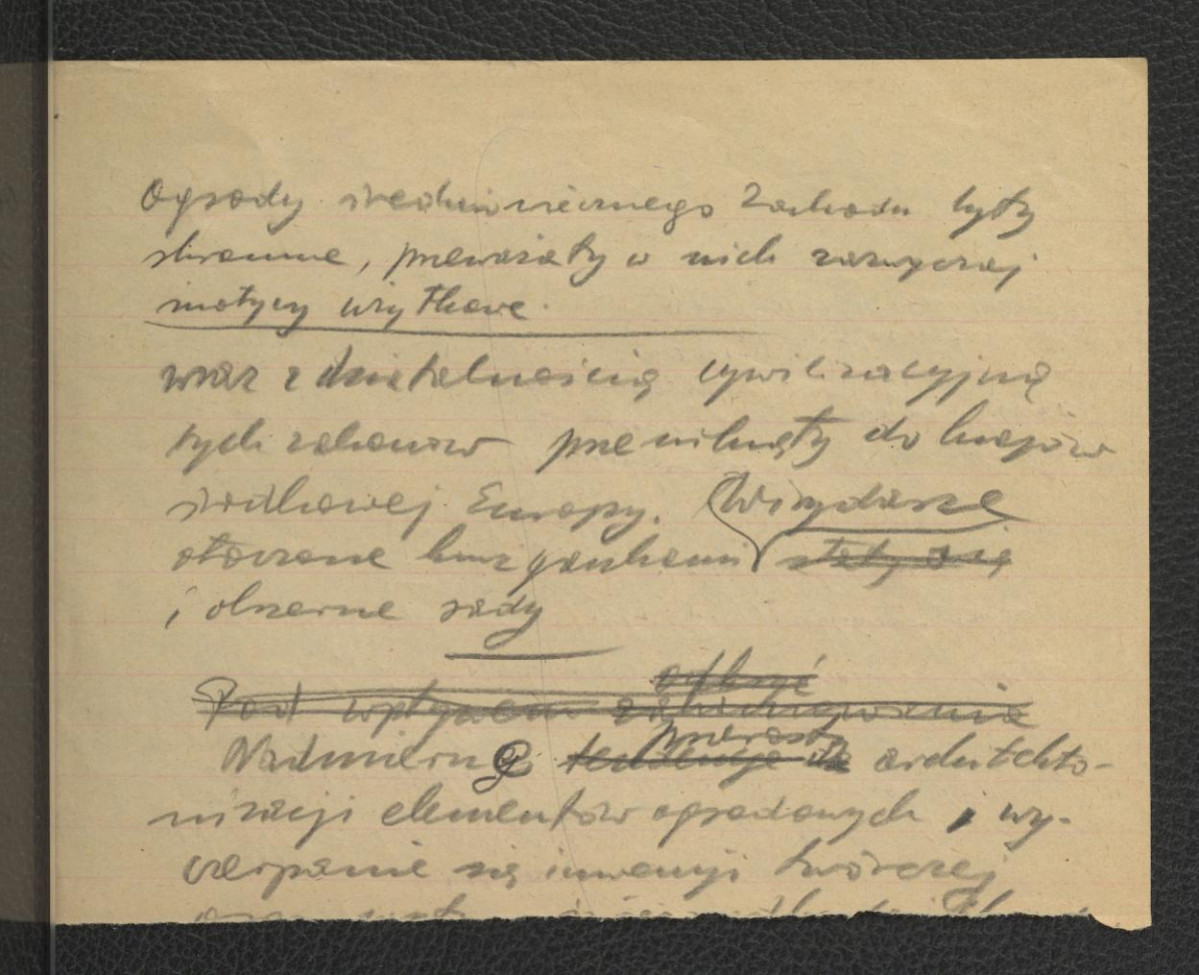 Ogrody średniowiecznego Zachodu były
skromne, przeważały w nich zazwyczaj
motywy użytkowe.
wraz z działalnością cywilizacyjną
tych zakonów przeniknęły do krajów
środkowej Europy. Wirydarze
otoczone krużgankami stały się
i obszerne sady
odkryć
Pod wpływem
przerosty
Nadmierne tendencje do architekto-
nizacji elementów ogrodowych, wy-
czerpanie się inwencji twórczej